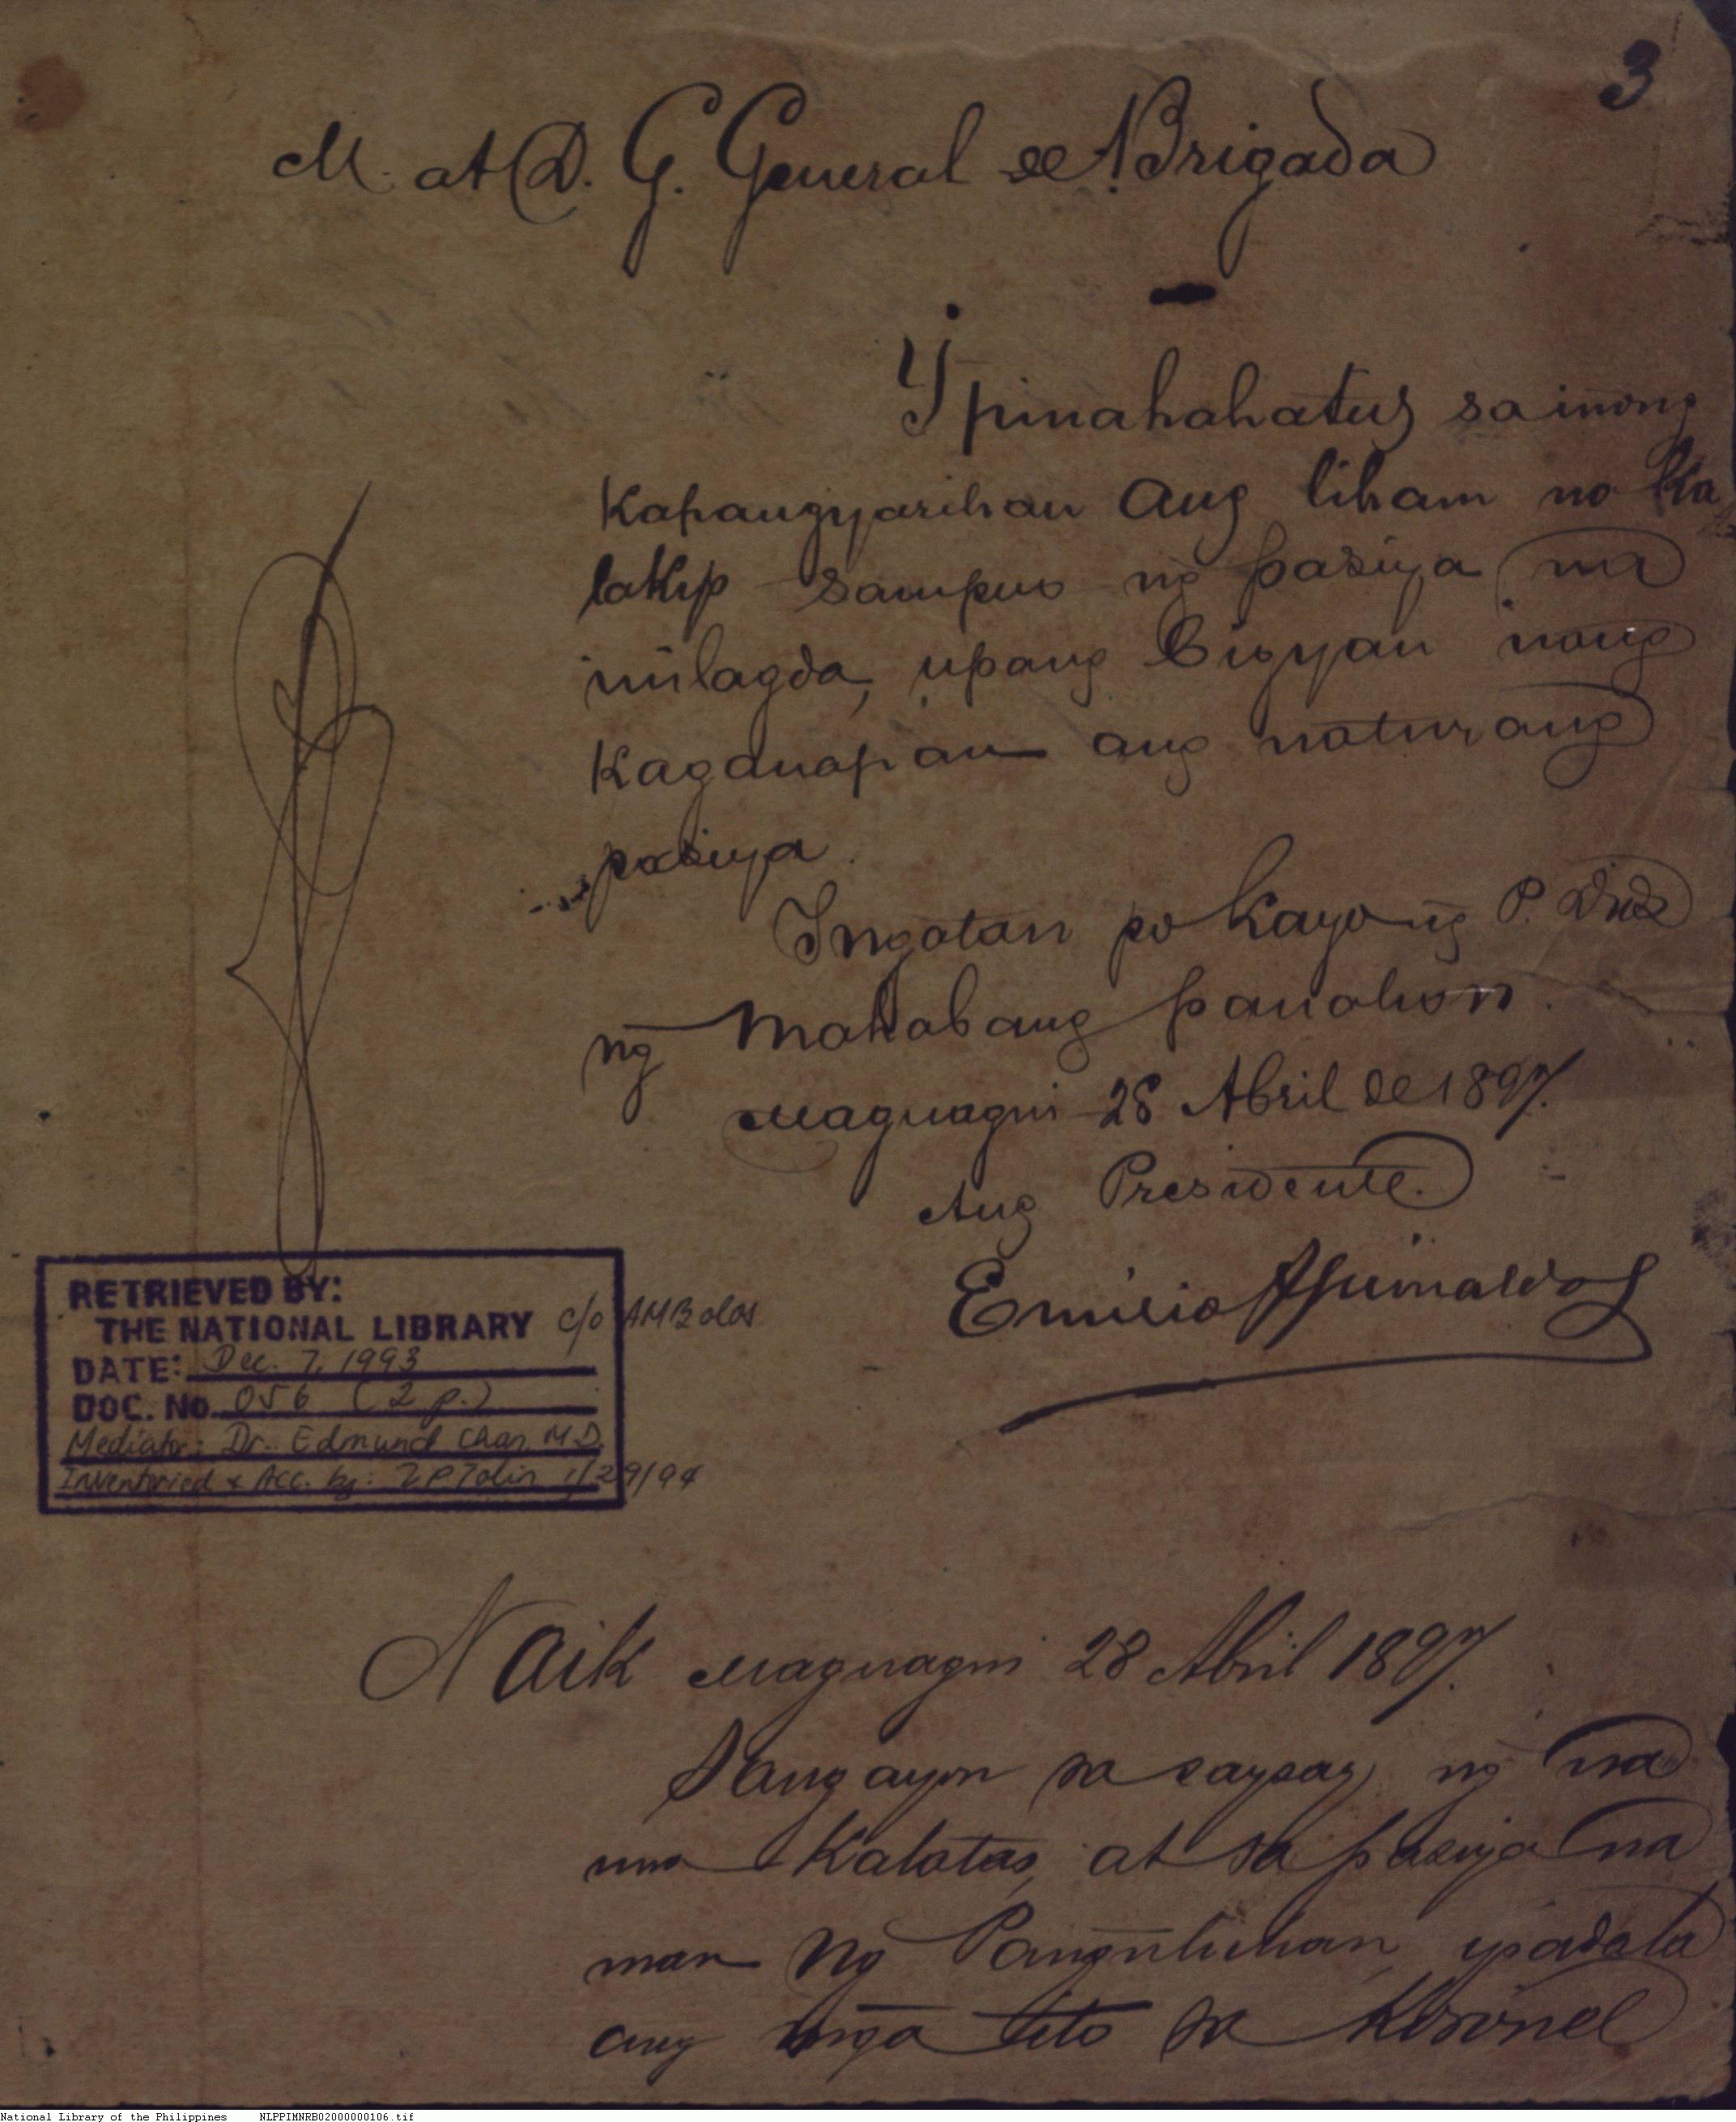 3
M. at D. G. General de Brigada
Ypinahahatus sa inong
kapangyarihan ang liham na ka
lakip sampuo ng pasiya na
inilagda, upang bigyan nang
kaganapan ang naturang
pasiya.
Ingatan po kayo ng P. Dios
ng mahabang panahon.
Magnagni 28 Abril de 1897.
Ang Presidente.
Emilio Aguinaldo
RETRIEVED BY:
THE NATIONAL LIBRARY c/o AMBolos
DATE: Dec. 7, 1993
DOC. No. 056 (2 p.)
Mediator: Dr. Edmund Chan, M.D.
Inventoried & Acc. by: 1/29/94
Naik Magnagni 28 Abril 1897.
Sangayon sa saysay ng na
una kalatas, at sa pasiya na
man ng Pangnluhan, ypadala
ang mga ito sa Koronel
National Library of the Philippines NLPPIMNRB02000000106.tif